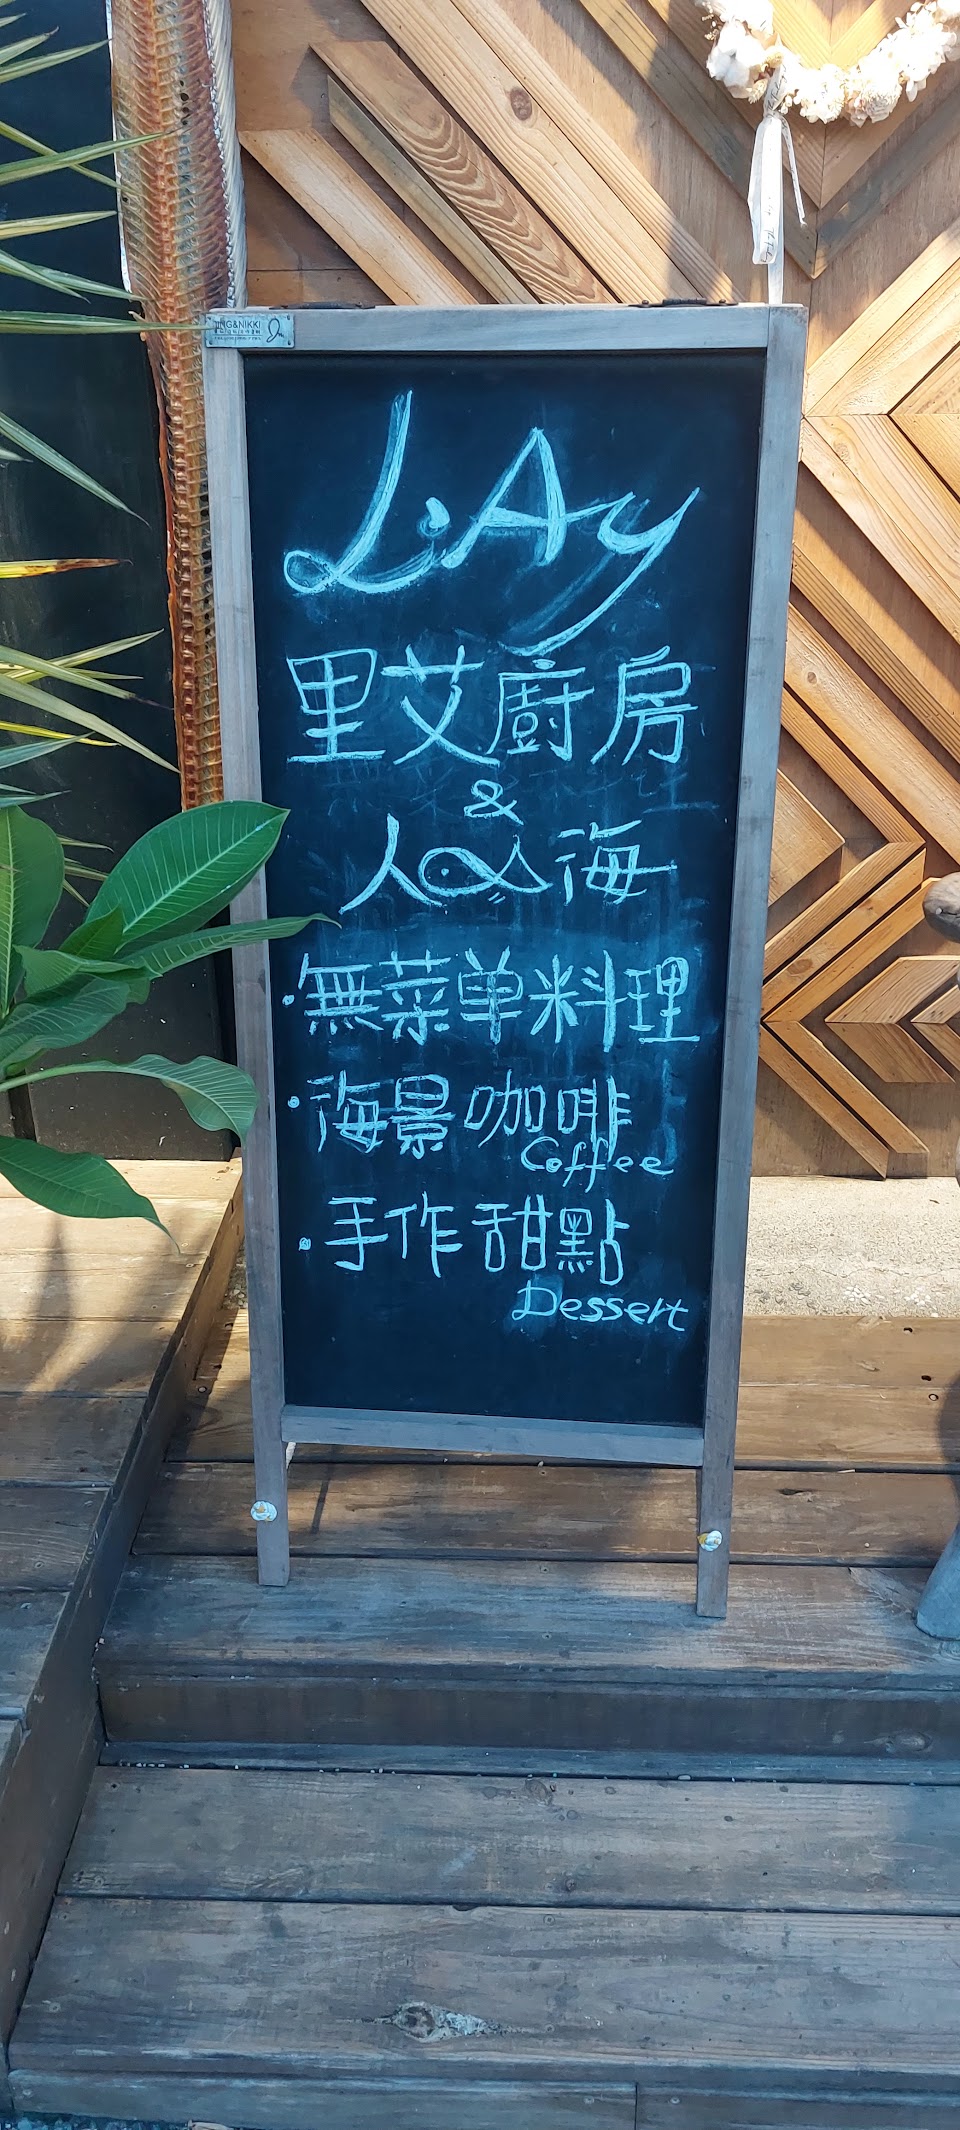 JING&NIKKI
L.Ay
里艾廚房
&
人 海
·無菜单料理
·海景咖啡
Coffee
·手作甜點
Dessert